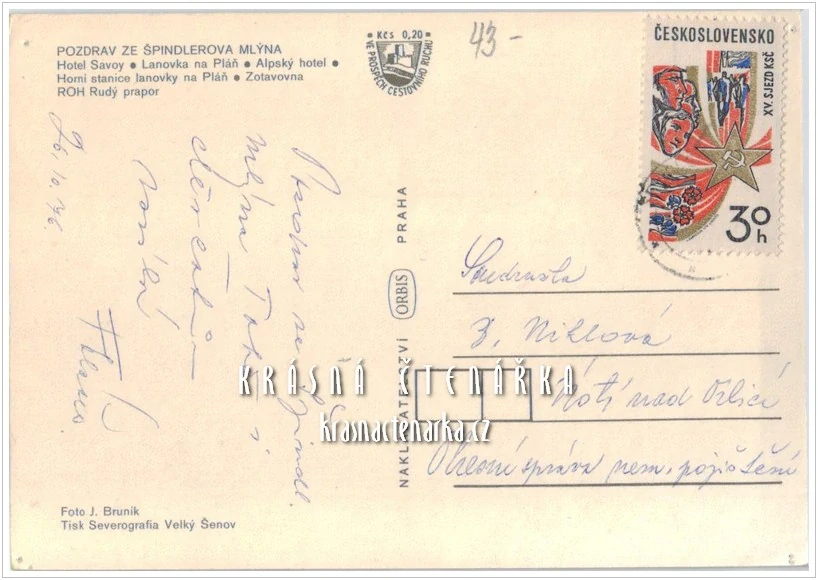 POZDRAV ZE ŠPINDLEROVA MLÝNA
Hotel Savoy ● Lanovka na Pláň ● Alpský hotel ●
Horní stanice lanovky na Pláň ● Zotavovna
ROH Rudý prapor
Kčs 0,20
VE PROSPĚCH CESTOVNÍHO RUCHU
43-
ČESKOSLOVENSKO
XV. SJEZD KSČ
30h
26. 10. 76.
Pozdrav ze Špindl.
mlýna
posílá
NAKLADATELSTVÍ ORBIS PRAHA
Soudružka
Z. Niklová
Ústí nad Orlicí
Okresní správa nem. pojištění
KRÁSNÁ ČTENÁŘKA
krasnactenarka.cz
Foto J. Bruník
Tisk Severografia Velký Šenov